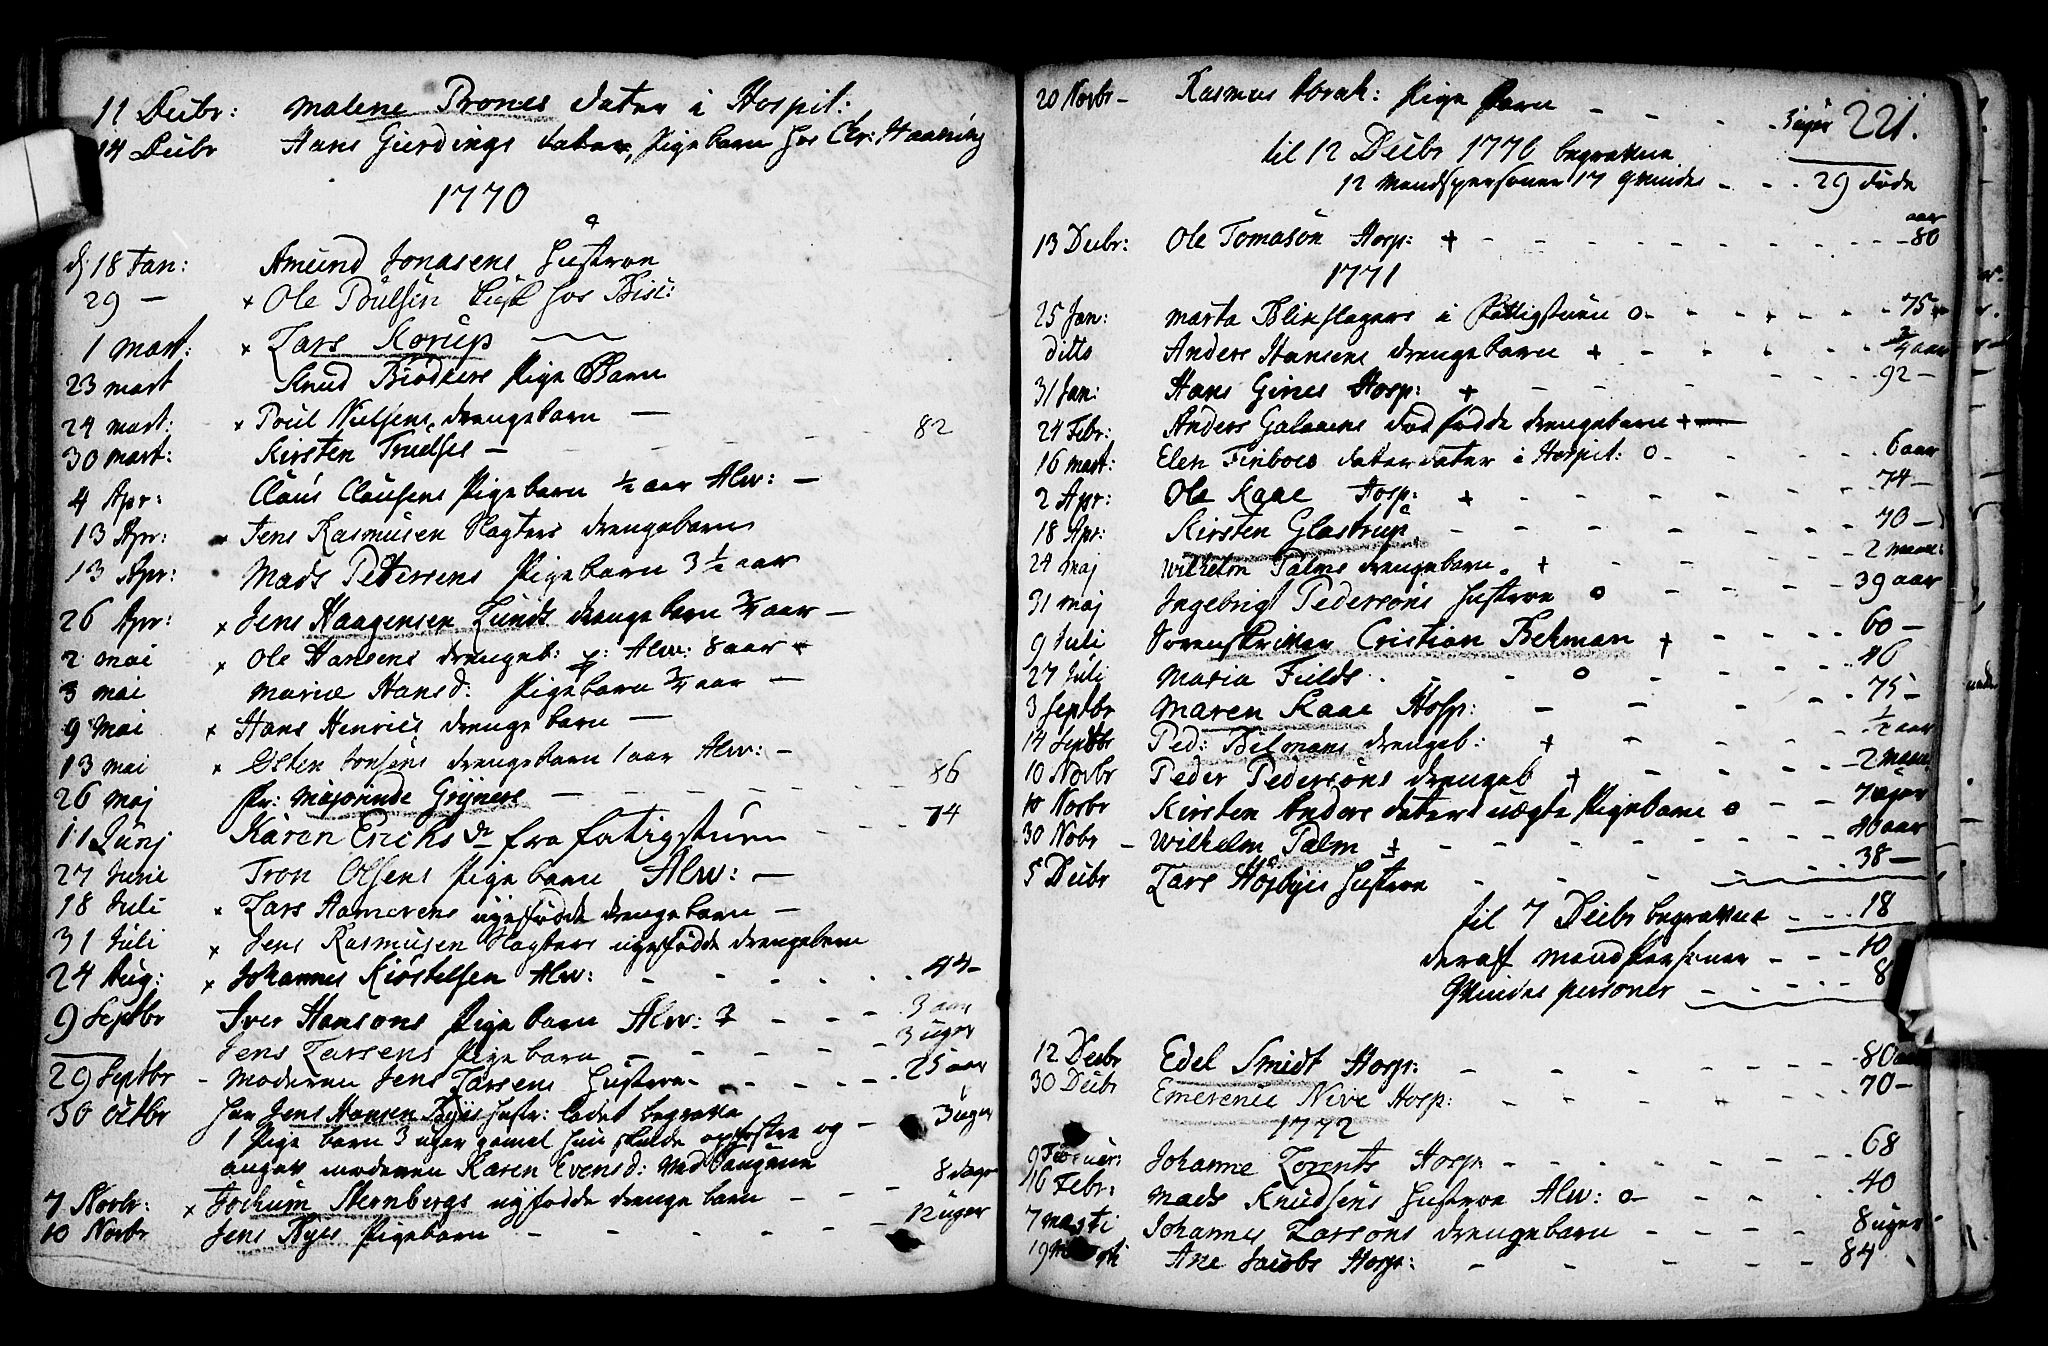 11 Debr: Malene Trones dater i Hospit:
14 Debr Hans Giurdings dater, Pigebarn hos Chr: Haaning
1770
dj 18 Jan: Amund Jonasens Hustroe
29 — × Ole Poulsen hos
1 Mart: × Lars Korup —
23 mart Knud Biødkers Pige Barn
24 mart: × Poul Nielsens drengebarn —
30 mart: Kirsten Truelses — 82
4 Apr: Claus Clausens Pigebarn ½ aar Alm: —
13 Apr: Jens Rasmusen Slagters drengebarn
13 Apr: Mads Petersens Pigebarn 3 ½ aar
26 Apr: × Jens Haagensen Lunds drengebarn ¾ aar —
2 mai × Ole Hansens drengeb: Alm: 8 aar
3 mai Marie Hansd: Pigebarn ¾ aar —
9 Mai × Hans Henrics drengebarn —
13 mai × Østen Jonsens drengebarn 1 aar Alm: —
26 Maj Majorinde Grÿners — 86
11 Junj Karen Erichsdr fra fatigstuen 74
27 Junie Tron Olsens Pigebarn Alm: —
18 Juli × Lars Aamerens nyefødde drengebarn —
31 Juli × Jens Rasmusen Slagters nyefødde drengebarn
24 Aug: × Johannes Kiøstelsen Alm: 44 —
9 Septbr Iver Hansøns Pigebarn Alm: 3 aar
Jens Larsens Pigebarn 3 uger
29 Septbr — Moderen Jens Larsens Hustroe 25 aar
30 Octbr har Jens Hansen Byes hustr: ladet begrave
1 Pige barn 3 uger gamel hun skulde opfostre og — 3 uger
angav moderen Karen Evensd:
7 Novbr: × Jochum Sternbergs nyfødde drengebarn 8 dage
10 Novbr Jens Nyes Pigebarn 12 uger
20 Novbr — Rasmus Abrah: Pige Barn 3 uger 221.
til 12 Debr 1770 begravne
12 Mandspersoner 17 qvindes 29 døde
13 Debr: Ole Tomasøn Hosp: + aar 80
1771
25 Jan: Marta Blikslagers i Fattigstuen o 75
ditto Anders Hansens drengebarn + ¾ aar
31 Jan: Hans Hosp: + 92 —
24 Febr: Anders Galaaens død fødde drengebarn +
16 mart: Elen Finboes daterdater i Hospit: o 6 aar
2 Apr: Ole Kaae Hosp: + 74 —
18 Apr: Kirsten Glostrup 70 —
24 Maj Wilhelm Palms drengebarn. + 2 maan:
31 Maj Ingebrigt Pedersøns Hustroe o 39 aar
9 Juli Sorenskriver Cristian Bekman + 60 —
27 Juli Maria Fields o 46
3 Septbr Maren Kaae Hosp: 75 —
14 Septbr Ped: Bilmans drengeb: + ½ aar
10 Novbr Peder Pedersøns drengeb + 2 maan:
10 Novbr Kirsten Anders dater uægte Pigebarn o 7 uger
30 Nobr — Wilhelm Palm + 40 aar
5 Debr Lars Høybyes Hustroe 38 —
til 7 Debr begravne 18
deraf Mandspersoner 10
Qvindes personer 8
12 Debr Edel Smidt Hosp: 80 aar
30 Debr Emerense Nive Hosp: 70 —
1772
9 Johanne Lorents Hosp 68
16 Febr: Mads Knudsens Hustroe Alm: o 40
7 Marti Johannes Larsøns drengebarn 8 uger
19 Ane Jacobs Hosp: 84